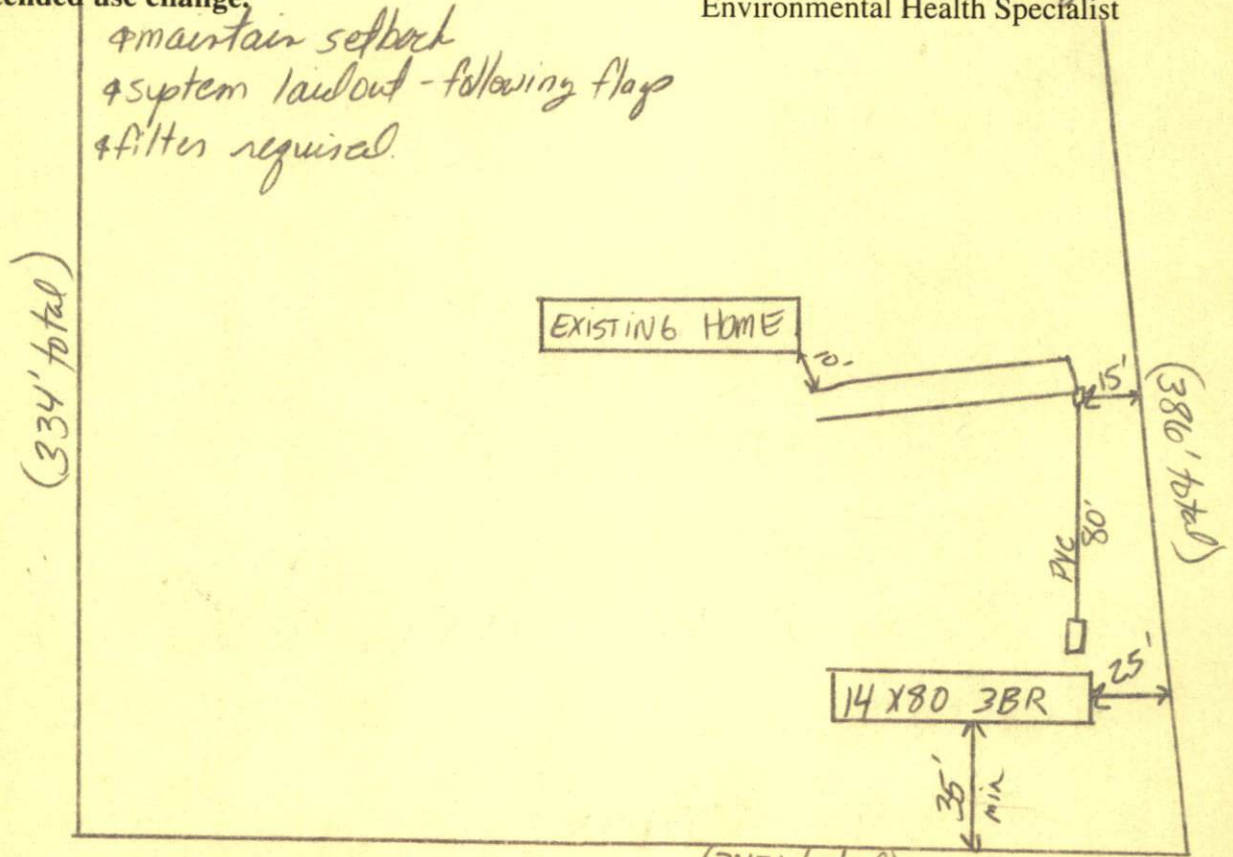 use change.
Environmental Health Specialist
maintain setback
system laid out - following flags
filter required.
(334' total)
EXISTING HOME
15'
(386' total)
PVC
80'
25'
14 X80 3BR
35'
min